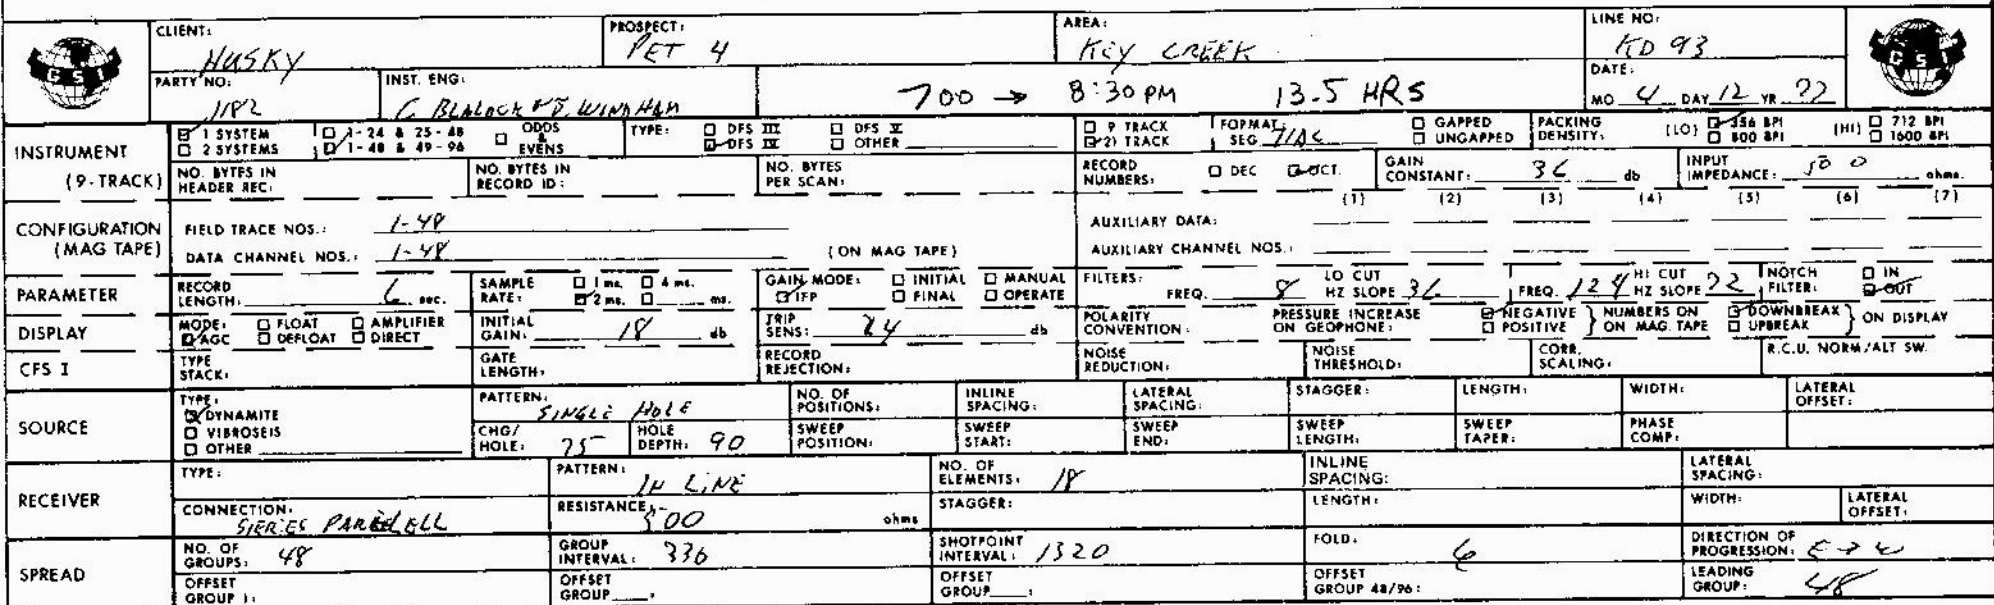 CLIENT: HUSKY PROSPECT: PET 4 AREA: KEY CREEK LINE NO: KD 93
GSI GSI
PARTY NO: 1182 INST. ENG: C BLALOCK + D. WINDHAM 700 → 8:30 PM 13.5 HRS DATE: MO 4 DAY 12 YR
INSTRUMENT (9-TRACK)
☑ 1 SYSTEM ☐ 1-24 & 25-48 ☐ ODDS & EVENS TYPE: ☐ DFS III ☐ DFS V ☐ 9 TRACK FORMAT: SEG ☐ GAPPED PACKING DENSITY: (LO) ☑ 356 BPI (HI) ☐ 712 BPI
☐ 2 SYSTEMS ☑ 1-48 & 49-96 ☑ DFS IV ☐ OTHER ☑ 21 TRACK ☐ UNGAPPED ☐ 800 BPI ☐ 1600 BPI
NO. BYTES IN HEADER REC: NO. BYTES IN RECORD ID: NO. BYTES PER SCAN: RECORD NUMBERS: ☐ DEC ☑ OCT. GAIN CONSTANT: 36 db INPUT IMPEDANCE: 500 ohms.
(1) (2) (3) (4) (5) (6) (7)
CONFIGURATION (MAG TAPE)
FIELD TRACE NOS.: 1-48 AUXILIARY DATA:
DATA CHANNEL NOS.: 1-48 (ON MAG TAPE) AUXILIARY CHANNEL NOS.:
PARAMETER RECORD LENGTH: 6 sec. SAMPLE RATE: ☐ 1 ms. ☐ 4 ms. ☑ 2 ms. ☐ ms. GAIN MODE: ☐ INITIAL ☐ MANUAL ☑ IFP ☐ FINAL ☐ OPERATE FILTERS: FREQ. 8 LO CUT HZ SLOPE 36 FREQ. 124 HI CUT HZ SLOPE 72 NOTCH FILTER: ☐ IN ☑ OUT
DISPLAY MODE: ☐ FLOAT ☐ AMPLIFIER ☑ AGC ☐ DEFLOAT ☐ DIRECT INITIAL GAIN: 18 db TRIP SENS: 24 db POLARITY CONVENTION: PRESSURE INCREASE ON GEOPHONE: ☑ NEGATIVE ☐ POSITIVE } NUMBERS ON MAG. TAPE ☑ DOWNBREAK ☐ UPBREAK } ON DISPLAY
CFS I TYPE STACK: GATE LENGTH: RECORD REJECTION: NOISE REDUCTION: NOISE THRESHOLD: CORR. SCALING: R.C.U. NORM/ALT SW.
SOURCE TYPE: ☒ DYNAMITE ☐ VIBROSEIS ☐ OTHER
PATTERN: SINGLE HOLE NO. OF POSITIONS: INLINE SPACING: LATERAL SPACING: STAGGER: LENGTH: WIDTH: LATERAL OFFSET:
CHG/HOLE: 75 HOLE DEPTH: 90 SWEEP POSITION: SWEEP START: SWEEP END: SWEEP LENGTH: SWEEP TAPER: PHASE COMP:
RECEIVER TYPE: PATTERN: IN LINE NO. OF ELEMENTS: 18 INLINE SPACING: LATERAL SPACING:
CONNECTION: SIERIES PARELELL RESISTANCE: 500 ohms STAGGER: LENGTH: WIDTH: LATERAL OFFSET:
SPREAD NO. OF GROUPS: 48 GROUP INTERVAL: 330 SHOTPOINT INTERVAL: 1320 FOLD: 6 DIRECTION OF PROGRESSION: E → W
OFFSET GROUP 1: OFFSET GROUP : OFFSET GROUP : OFFSET GROUP 48/96: LEADING GROUP: 48